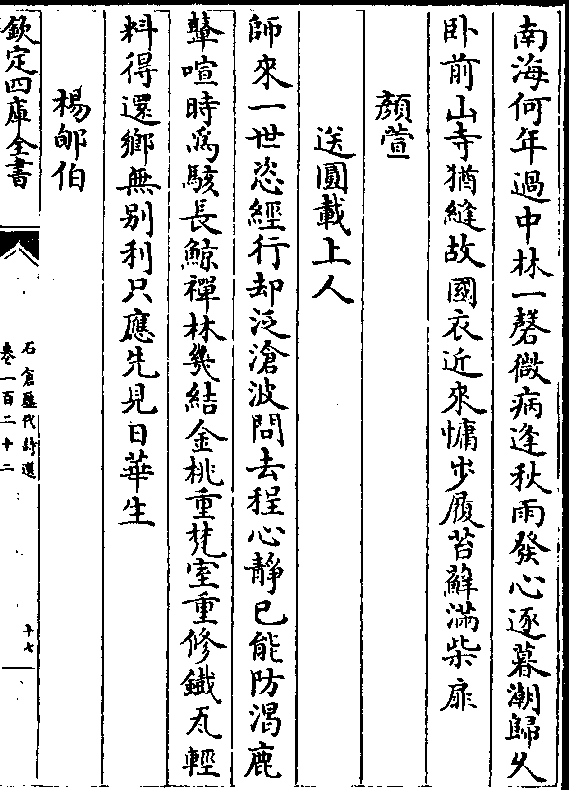 南海何年過中林一磬微病逢秋雨發心逐暮潮歸久
卧前山寺猶縫故國衣近來慵步履苔蘚滿柴扉
顔萱
送圓載上人
師來一世恣經行却泛滄波問去程心静已能防渴鹿
鼙喧時爲駭長鯨禪林幾結金桃重梵室重修鐵瓦輕
料得還鄉無别利只應先見日華生
楊邮伯
欽定四庫全書
石倉歷代詩選
卷一百二十二
十七